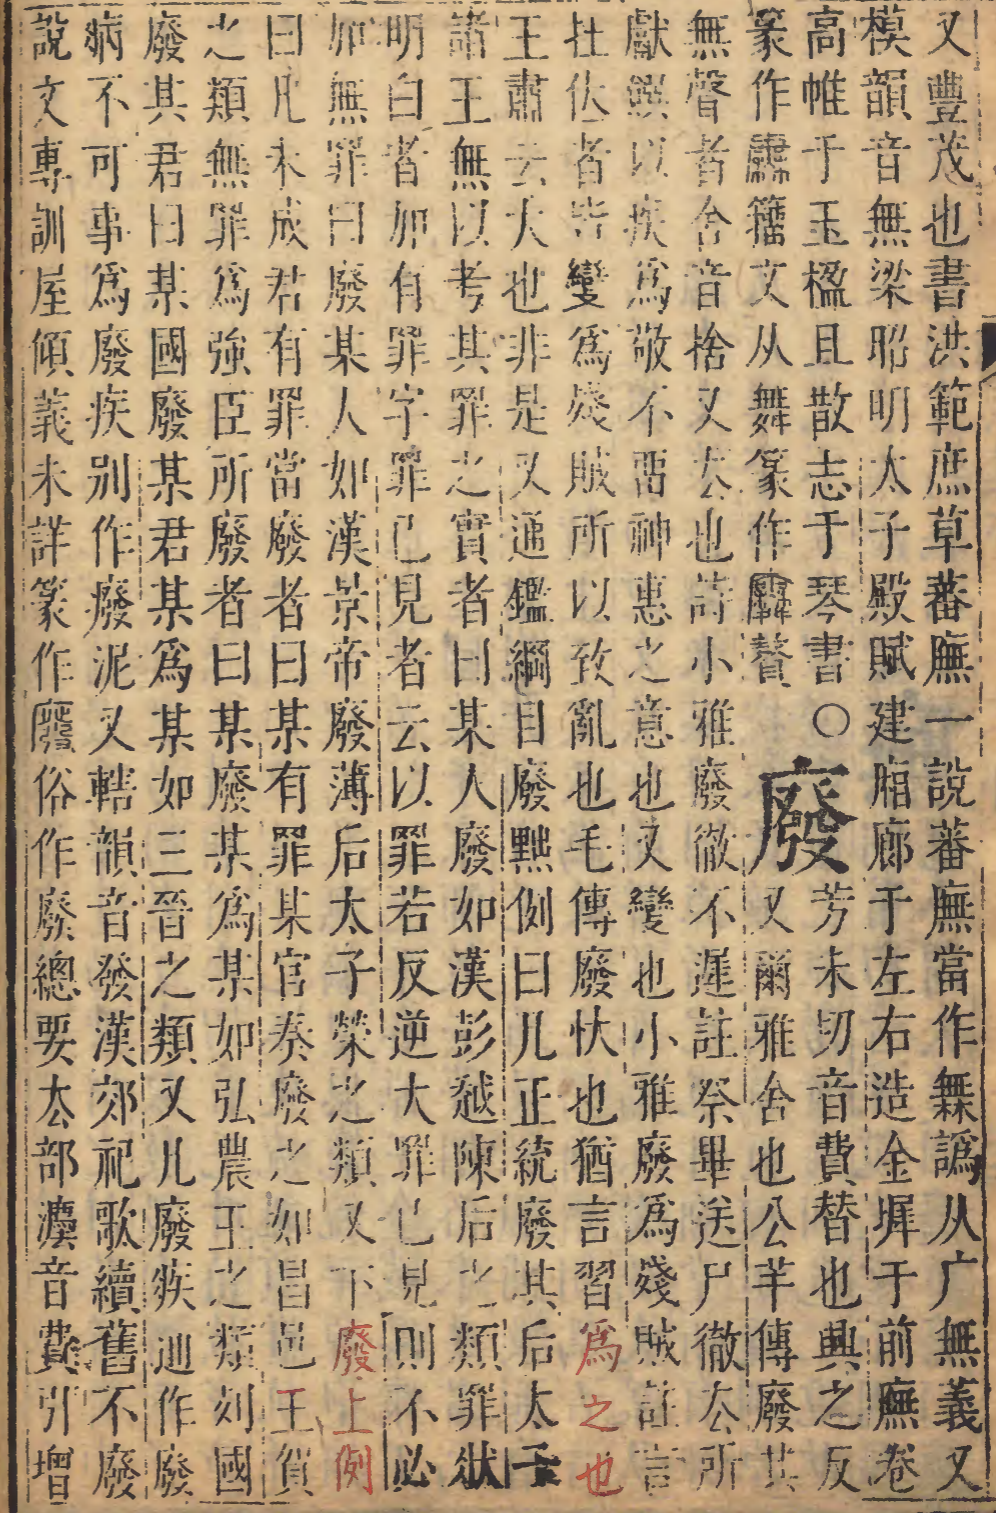 又豐茂也書洪範庶草蕃廡一說蕃廡當作橆譌从广無義又
模韻音無梁昭明太子殿賦建廂廊于左右造金墀于前廡卷
高帷于玉楹且散志于琴書○廢芳未切音費替也興之反
篆作廡籀文从舞篆作贅又爾雅舍也公羊傳廢其
無聲者舍音捨又去也詩小雅廢徹不遲註祭畢送尸徹去所
獻饌以疾為敬不畱神惠之意也又變也小雅廢為殘賊註言
在位者皆變為殘賊所以致亂也毛傳廢忕也猶言習為之也
王肅云大也非是又通鑑綱目廢黜例曰凡正統廢其后太子
諸王無以考其罪之實者曰某人廢如漢彭越陳后之類罪狀
明白者加有罪字罪已見者云以罪若反逆大罪已見則不必
加無罪曰廢某人如漢景帝廢薄后太子榮之類又下廢上例
曰凡未成君有罪當廢者曰某有罪某官奏廢之如昌邑王賀
之類無罪為強臣所廢者曰某廢某為某如弘農王之類列國
廢其君曰某國廢某君某為某如三晉之類又凡廢疾通作廢
病不可事為廢疾別作癈泥又轄韻音發漢郊祀歌續舊不廢
說文專訓屋傾義未詳篆作廢俗作廃總要去部灋音費引增